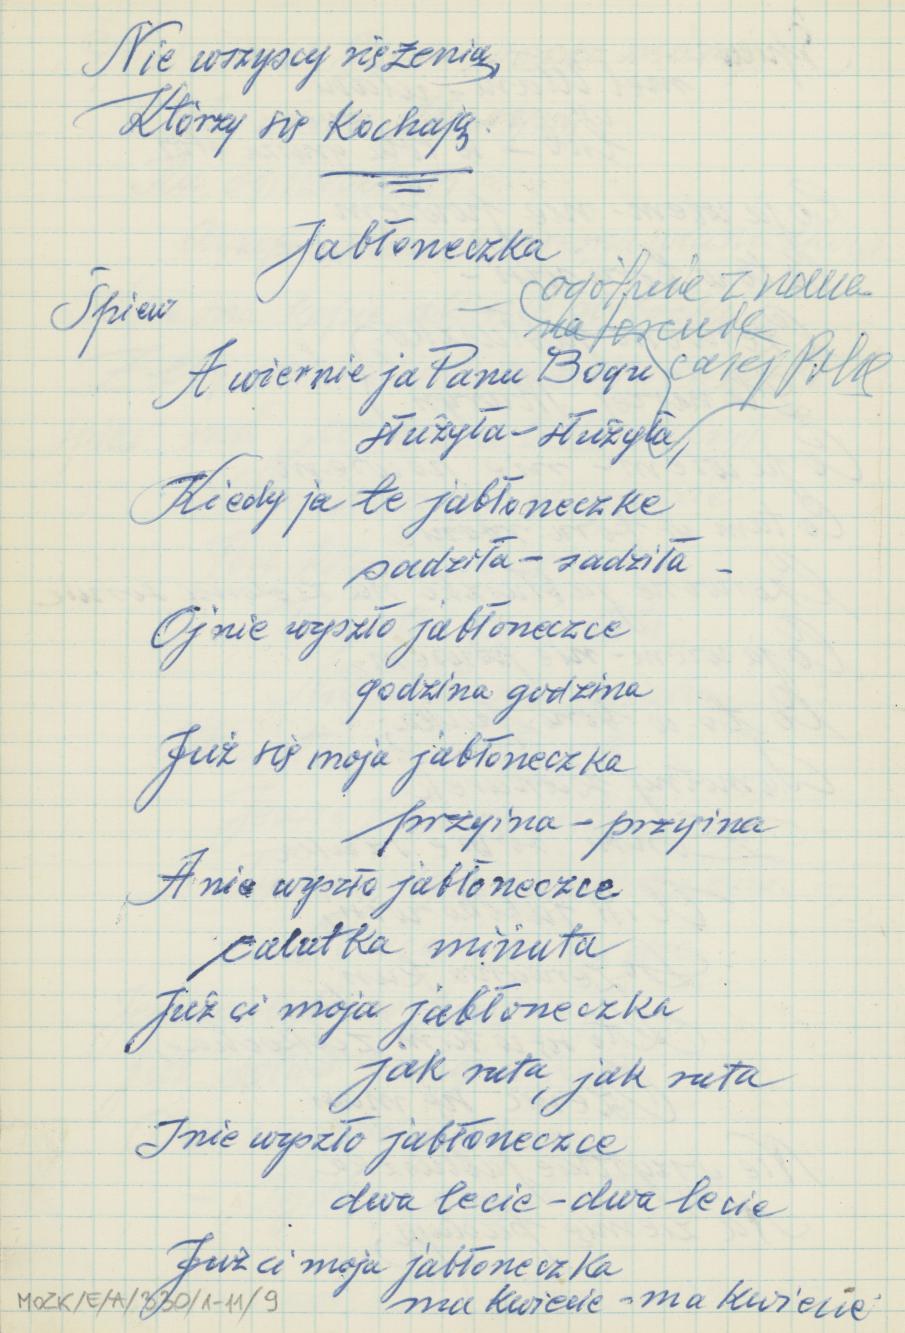 Nie wszyscy się żenią,
Którzy się kochają.
Jabłoneczka
Śpiew
— ogólnie znana
na terenie
całej Polski
A wiernie ja Panu Bogu
służyła - służyła,
Kiedy ja te jabłoneczke
sadziła - sadziła -
Oj nie wyszło jabłoneczce
godzina godzina
Już się moja jabłoneczka
przyina - przyina
A nie wyszło jabłoneczce
calutka minuta
Już ci moja jabłoneczka
jak ruta, jak ruta
I nie wyszło jabłoneczce
dwa lecie - dwa lecie
Już ci moja jabłoneczka
ma kwiecie - ma kwiecie
MOZK/E/A/330/1-11/9